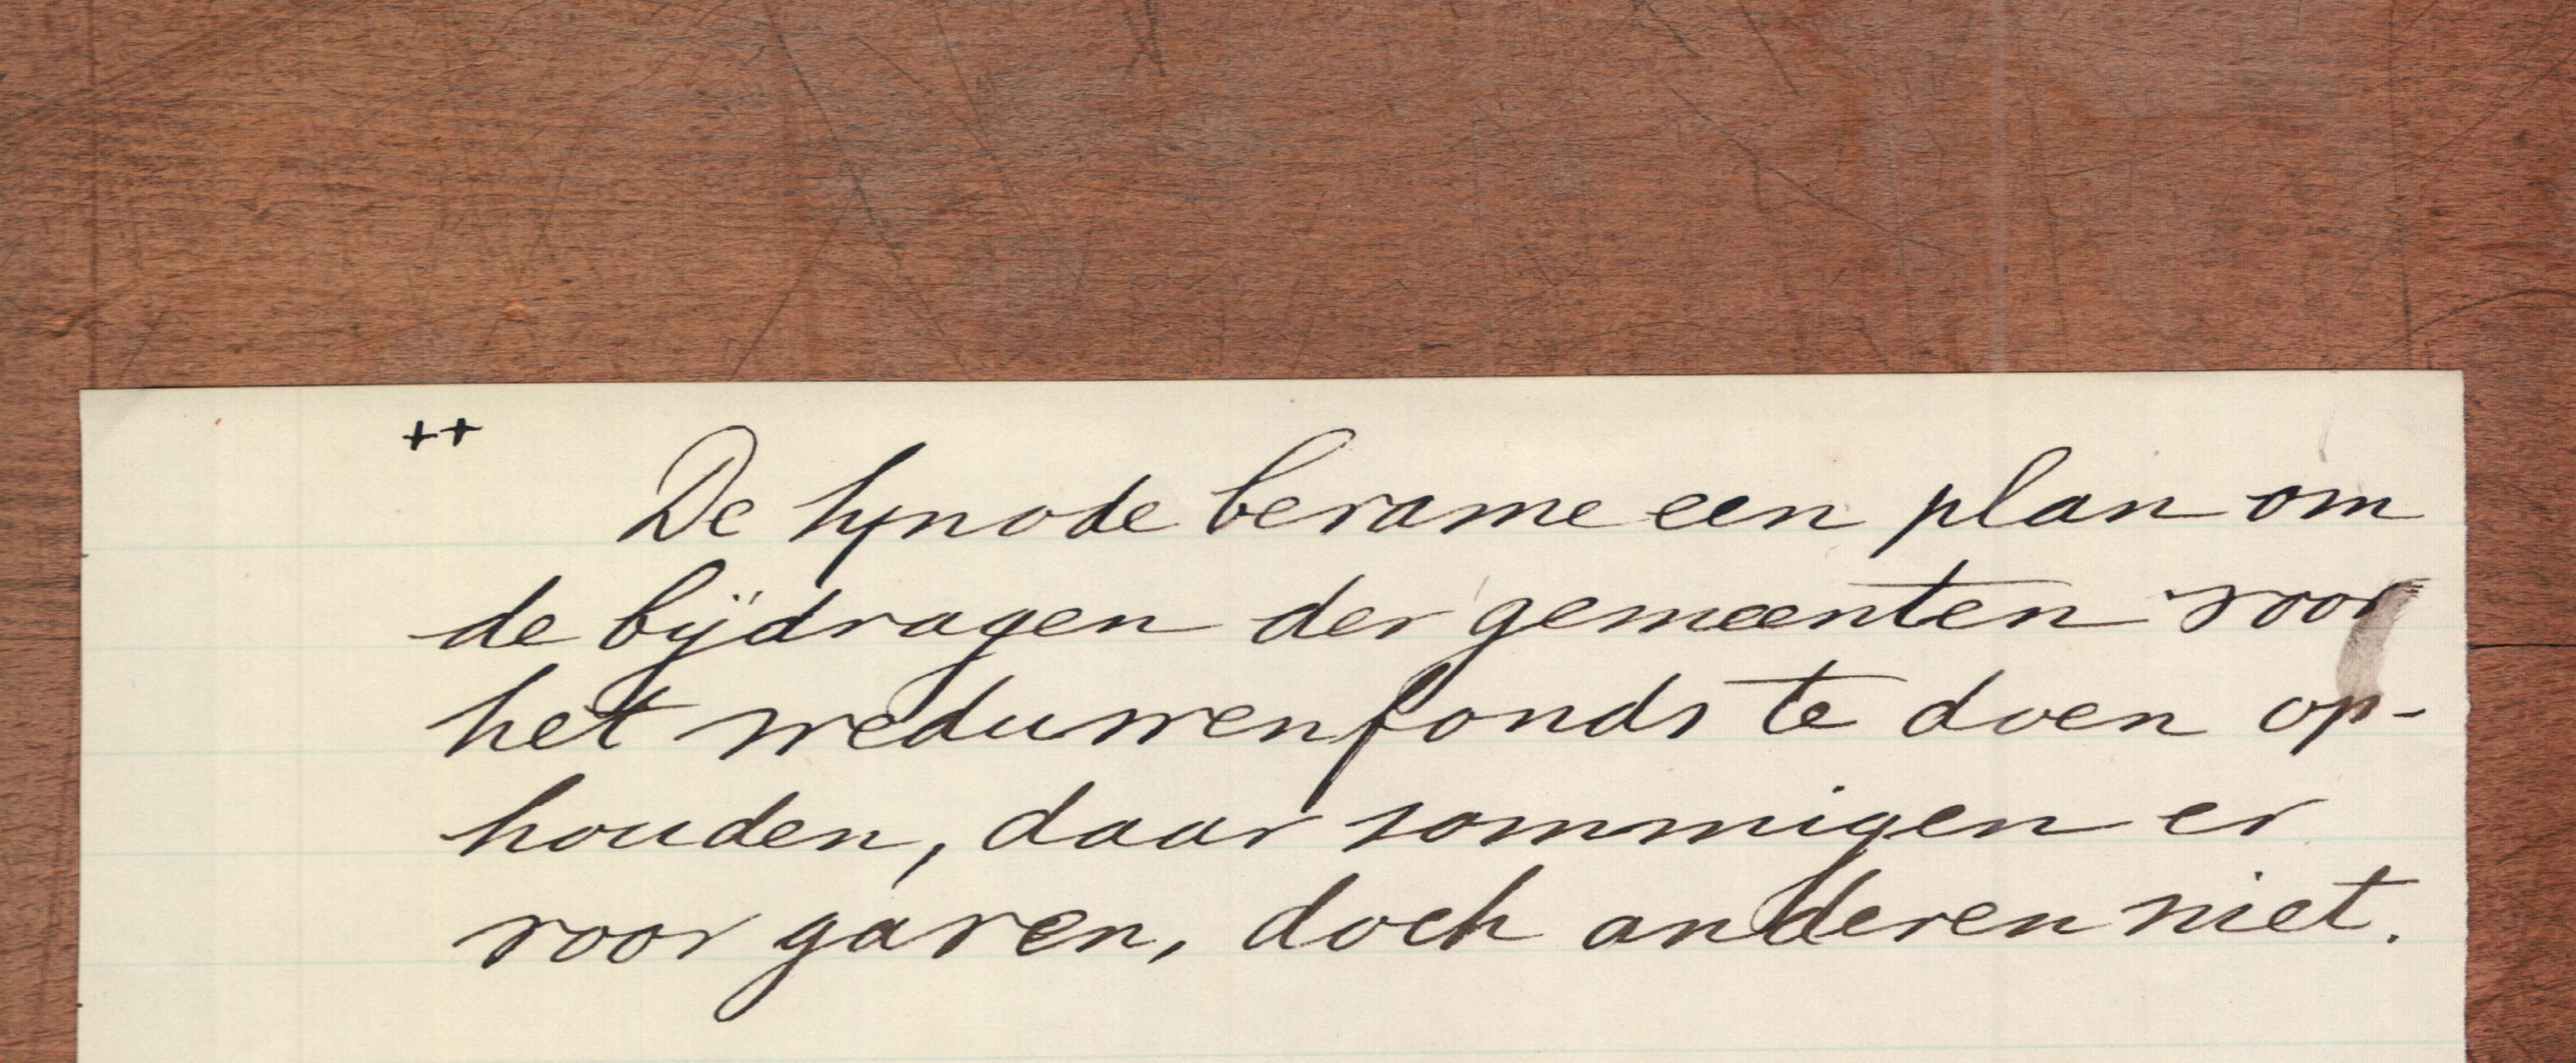 ++
De Synode berame een plan om
de bijdragen der gemeenten voor
het weduwenfonds te doen op-
houden, daar sommigen er
voor gaven, doch anderen niet.